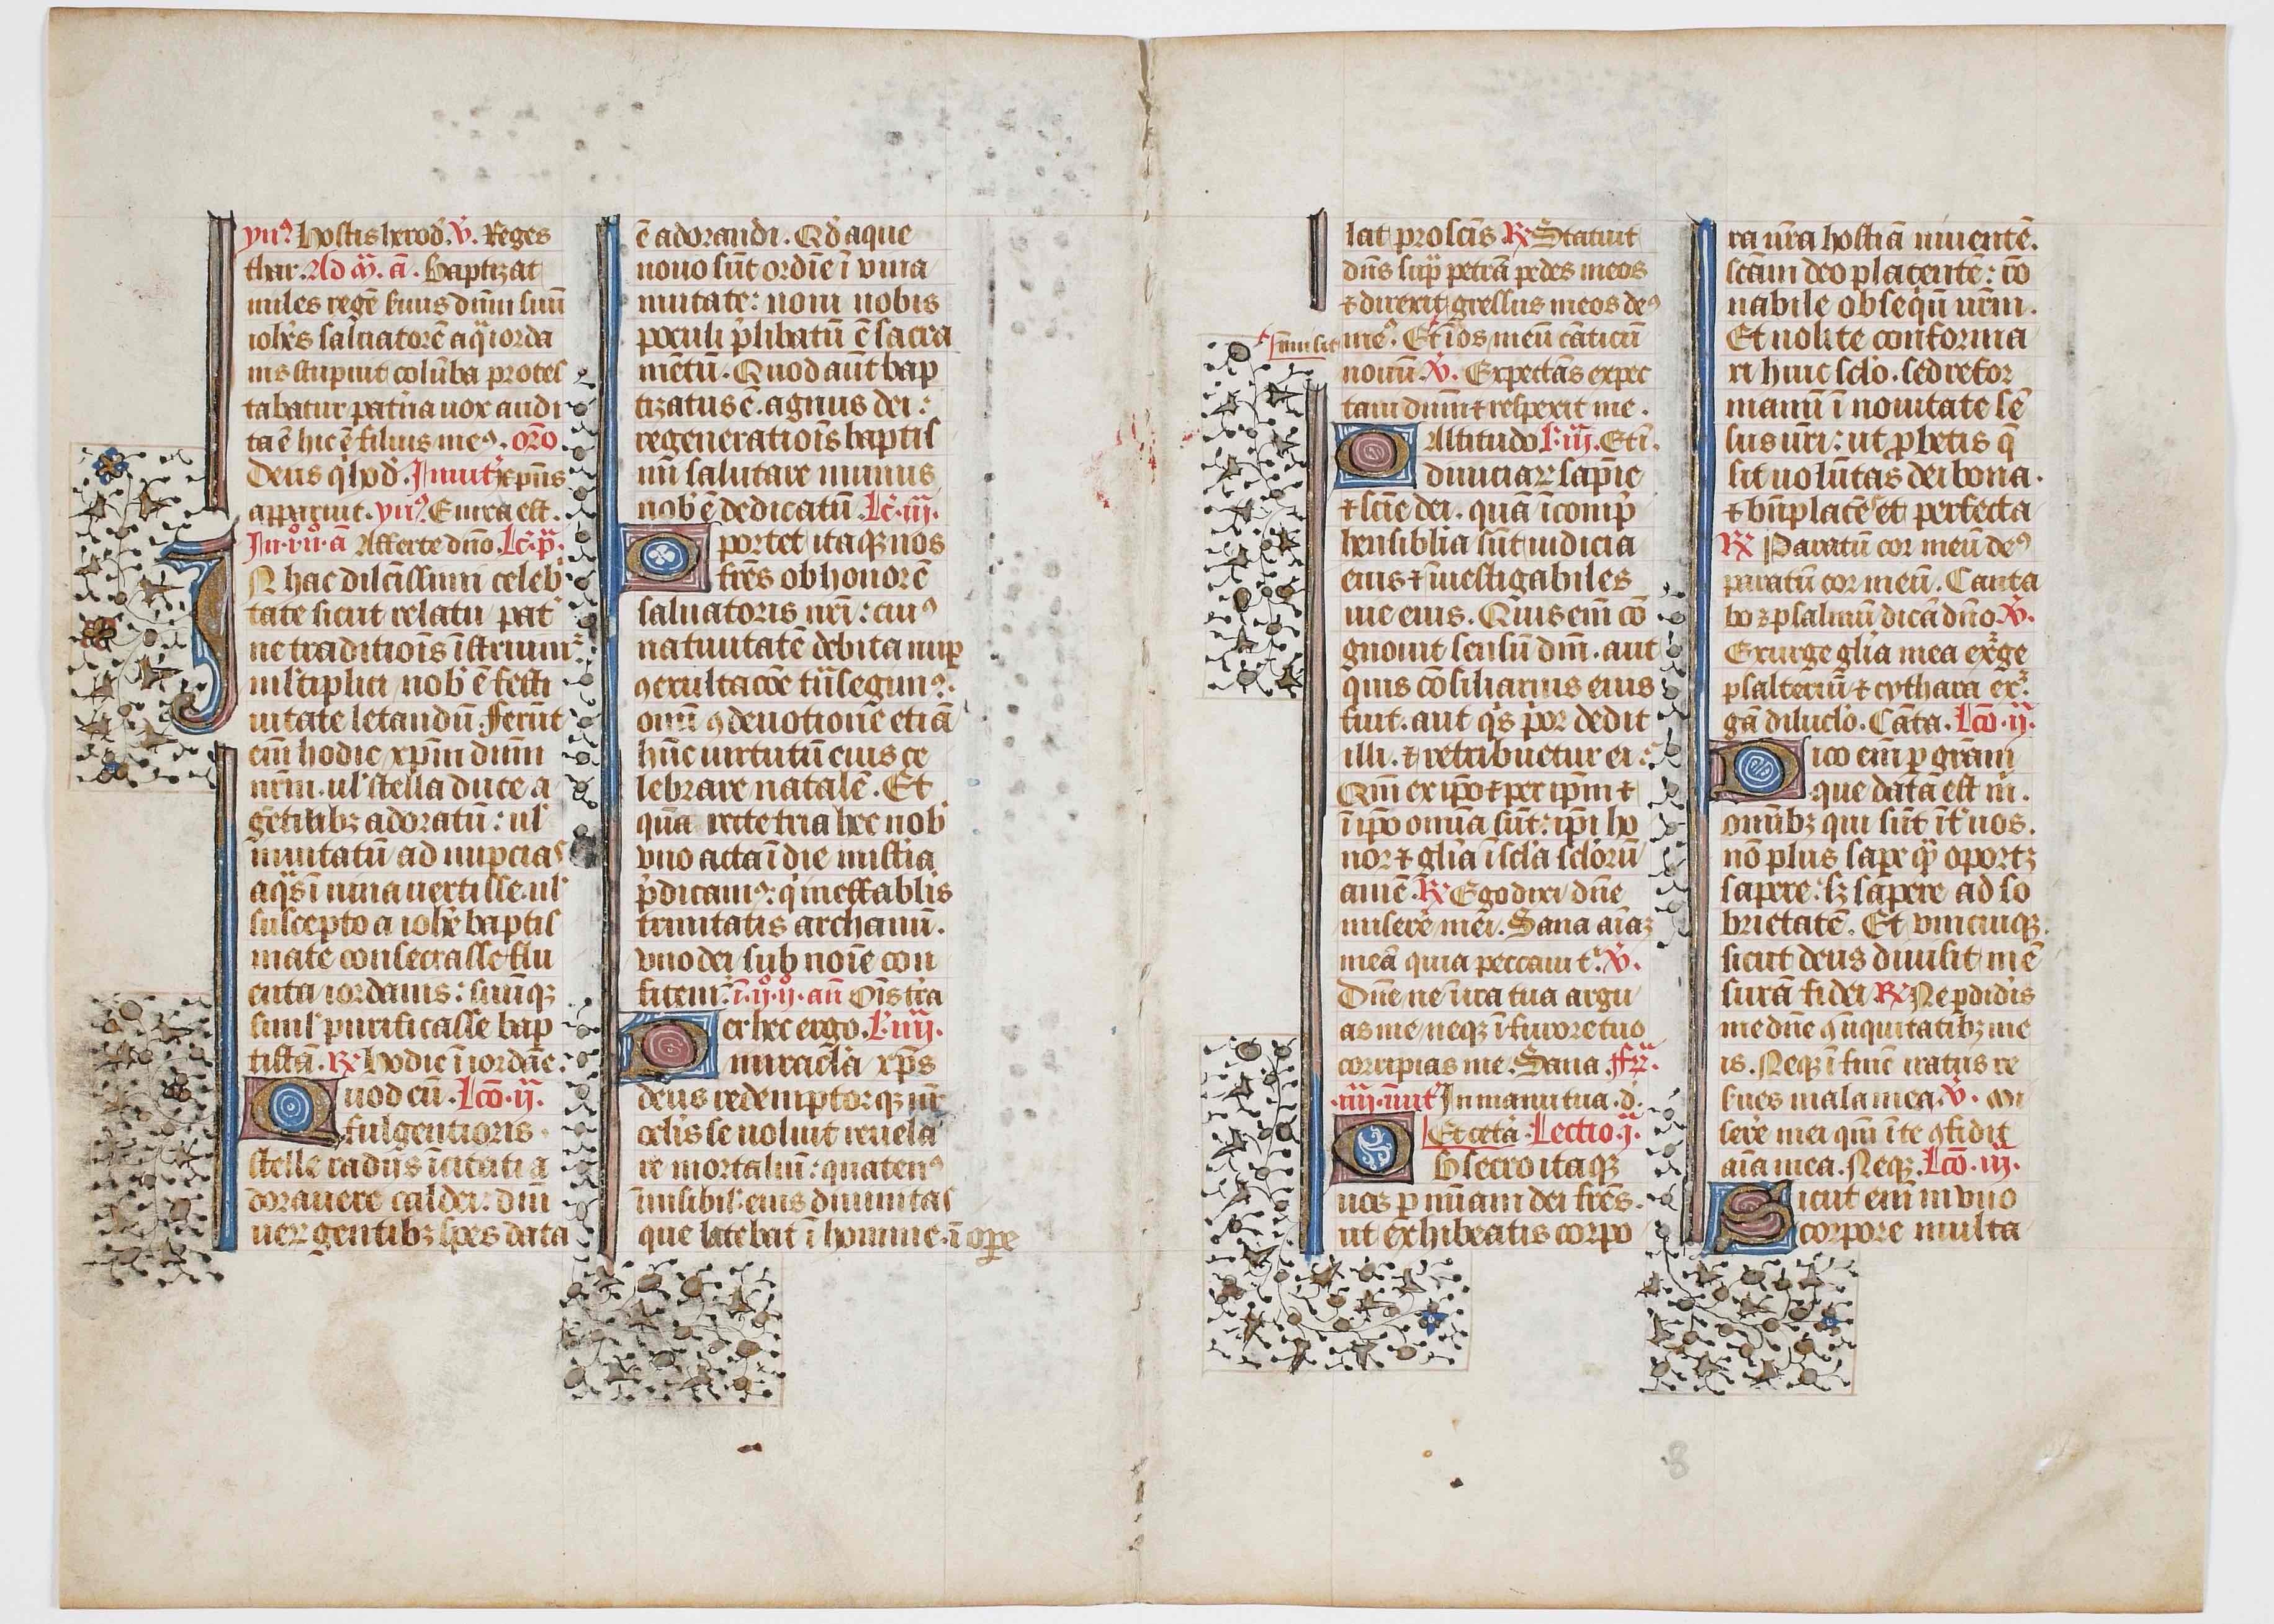 ymꝰ. Hostis herod̛. v̛. Reges
thar. Ad m̄. ā. Baptizat
miles regē suus dn̄m suū
ioh̄es saluatorē aq̄ iorda
nis stupuit colūba protes
tabatur pat̛na uox audi
ta ē hic ē filius meꝰ. or̄o
Deus q̛ hod̛. Inuit̛. xp̄us
apparuit. ymꝰ. E
In. i̊. n̊. ā Afferte dn̄o. Lc̄. p̄.
IN hac dilc̄issimi celeb̛
tate sicut relatu pat̛
ne traditiōis īstruimꝛ
multiplici nob̛ ē festi
uitate letandū. ferūt
em̄ hodie xp̄m dn̄m
nr̄m. ul̛ stella duce a
gētibꝫ adoratū: ul̛
inuitatū ad nupcias
aq̄s ī uina uertisse. ul̛
suscepto a ioh̄e baptis
mate consecrasse flu
enta iordanis: simūqꝫ
siml̛ purificasse bap
tistā. ℟ Hodie ī iordāe:
Quod cū. Lc̄o. ij.
fulgentioris
stelle radijs īcitati a
dorauere caldei: dn̄i
uer̛ gentibꝫ spes data
ē adorandi. Qd̛ aque
nouo sūt ordīe ī vina
mutate: noui nobis
poculi p̛libatū ē sacra
mētū. Quod aūt bap
tizatus ē. agnus dei:
regeneratiōis baptis
mi salutare munus
nob̛ ē dedicatū. Lc̄. iij.
Oportet itaqꝫ nos
fr̄es ob honorē
saluatoris nr̄i: cuiꝰ
natiuitatē debita nuꝑ
ꝯexultac̄oe
om̄i ꝯdeuotione etiā
hūc uirtutū eius ce
lebrare natalē. Et
quā recte tria hec nob̛
vno acta ī die misteria
p̛dicamꝰ: q̛ ineffabl̛is
trinitatis archanū.
vno dei sub noīe con
fitemꝛ. ī. ij̊. n̊. an̄ Oīs tr̄a
Per hec ergo. l̛. iiij.
miracl̛a xp̄s
deus redemptorqꝫ nr̄
celis se uoluit reuela
re mortaliū: quatenꝰ
īuisibil̛ eius diuinitas
que latebat ī homine. ī oꝑe
lat pro sc̄is ℟ Statuit
dn̄s sup̛ petrā pedes meos
⁊ direxit gressus meos deꝰ
†īmisit meꝰ. Et ī os meū cāticū
nouū. v̛. Expectās expec
taui dn̄m ⁊ respexit me.
O Altitudo l̛. iij. Et ī.
diuiciaꝝ sapīe
⁊ scīe dei. quā īcomp̛
hensiblia sūt iudicia
eius ⁊ īuestigabiles
uie eius. Quis em̄ cō
gnouit sensū dn̄i. aut
quis cōsiliarius eius
fuit. aut q̛s p̛or dedit
illi. ⁊ retribuetur ei:
Qm̄ ex ip̄o ⁊ per ip̄m ⁊
ī ip̄o om̄ia sūt: ip̄i ho
nor ⁊ gl̛ia ī scl̛a scl̛orū
amē. ℟ Ego dixi dn̄e
misere mei. Sana aīaꝫ
meā quia peccaui t̛. v̛.
Dn̄e ne ī ira tua argu
as me neqꝫ ī furore tuo
corripias me. Sana. fr̄.
.iiij. īuit̛ In manu tua. d̛.
Et cet̄a. Lectio. j.
Obsecro itaqꝫ
uos p̱ mīam dei fr̄es.
ut exhibeatis corpo
ra ur̄a hostiā uiuentē.
sc̄am deo placentē: rō
nabile obsequiū ur̄m.
Et nolite conforma
ri huic scl̛o. sed refor
mamī ī nouitate sē
sus ur̄i: ut ꝓbetis q̄
sit uolūtas dei bona.
⁊ bn̄placēs et perfecta
℟ Paratū cor meū deꝰ
paratū cor meū. Canta
bo ⁊ psalmū dicā dn̄o v̛.
Exurge gl̛ia mea exꝛge
psalteriū ⁊ cythara exꝛ
gā diluclơ. Cāta. Lc̄o. ij.
Dico em̄ p̱ grām
que data est m̄.
om̄ibꝫ qui sūt īt̛ uos.
nō plus sape̛ qꝫ oportꝫ
sapere. sꝫ sapere ad so
brietatē. Et vnicuiqꝫ.
sicut deus diuisit mē
surā fidei ℟ Ne p̱didis
me dn̄e cū īiquitatibꝫ me
is. Neqꝫ ī finē iratus re
serues mala mea. v̛. Mi
sere mei qm̄ ī te ꝯfidit
aīa mea. Neqꝫ. Lc̄o. iij.
Sicut em̄ in vno
corpore multa
8